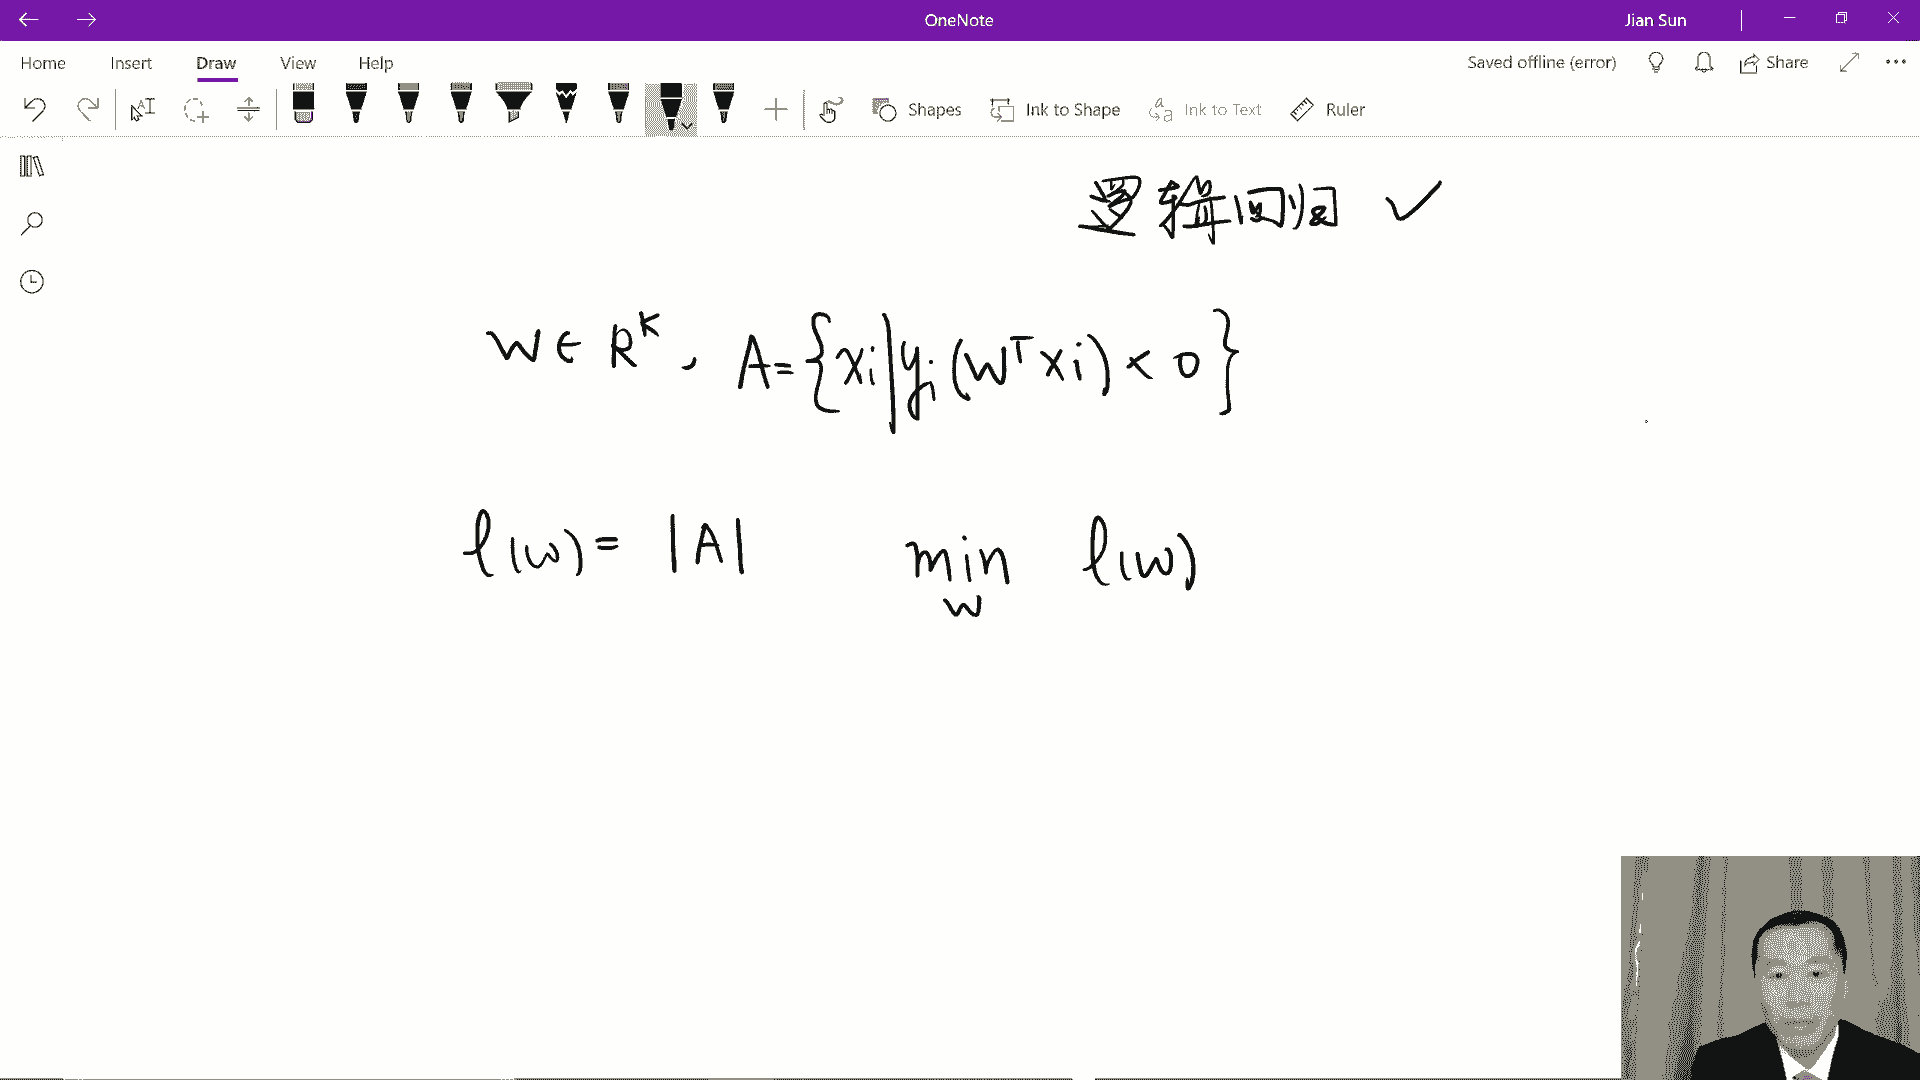 OneNote
Jian Sun
Home Insert Draw View Help
Saved offline (error) Share
Shapes Ink to Shape Ink to Text Ruler
逻辑回归 ✓
w ∈ R^K , A = { xi | yi (w^T xi) < 0 }
l(w) = |A| min_w l(w)